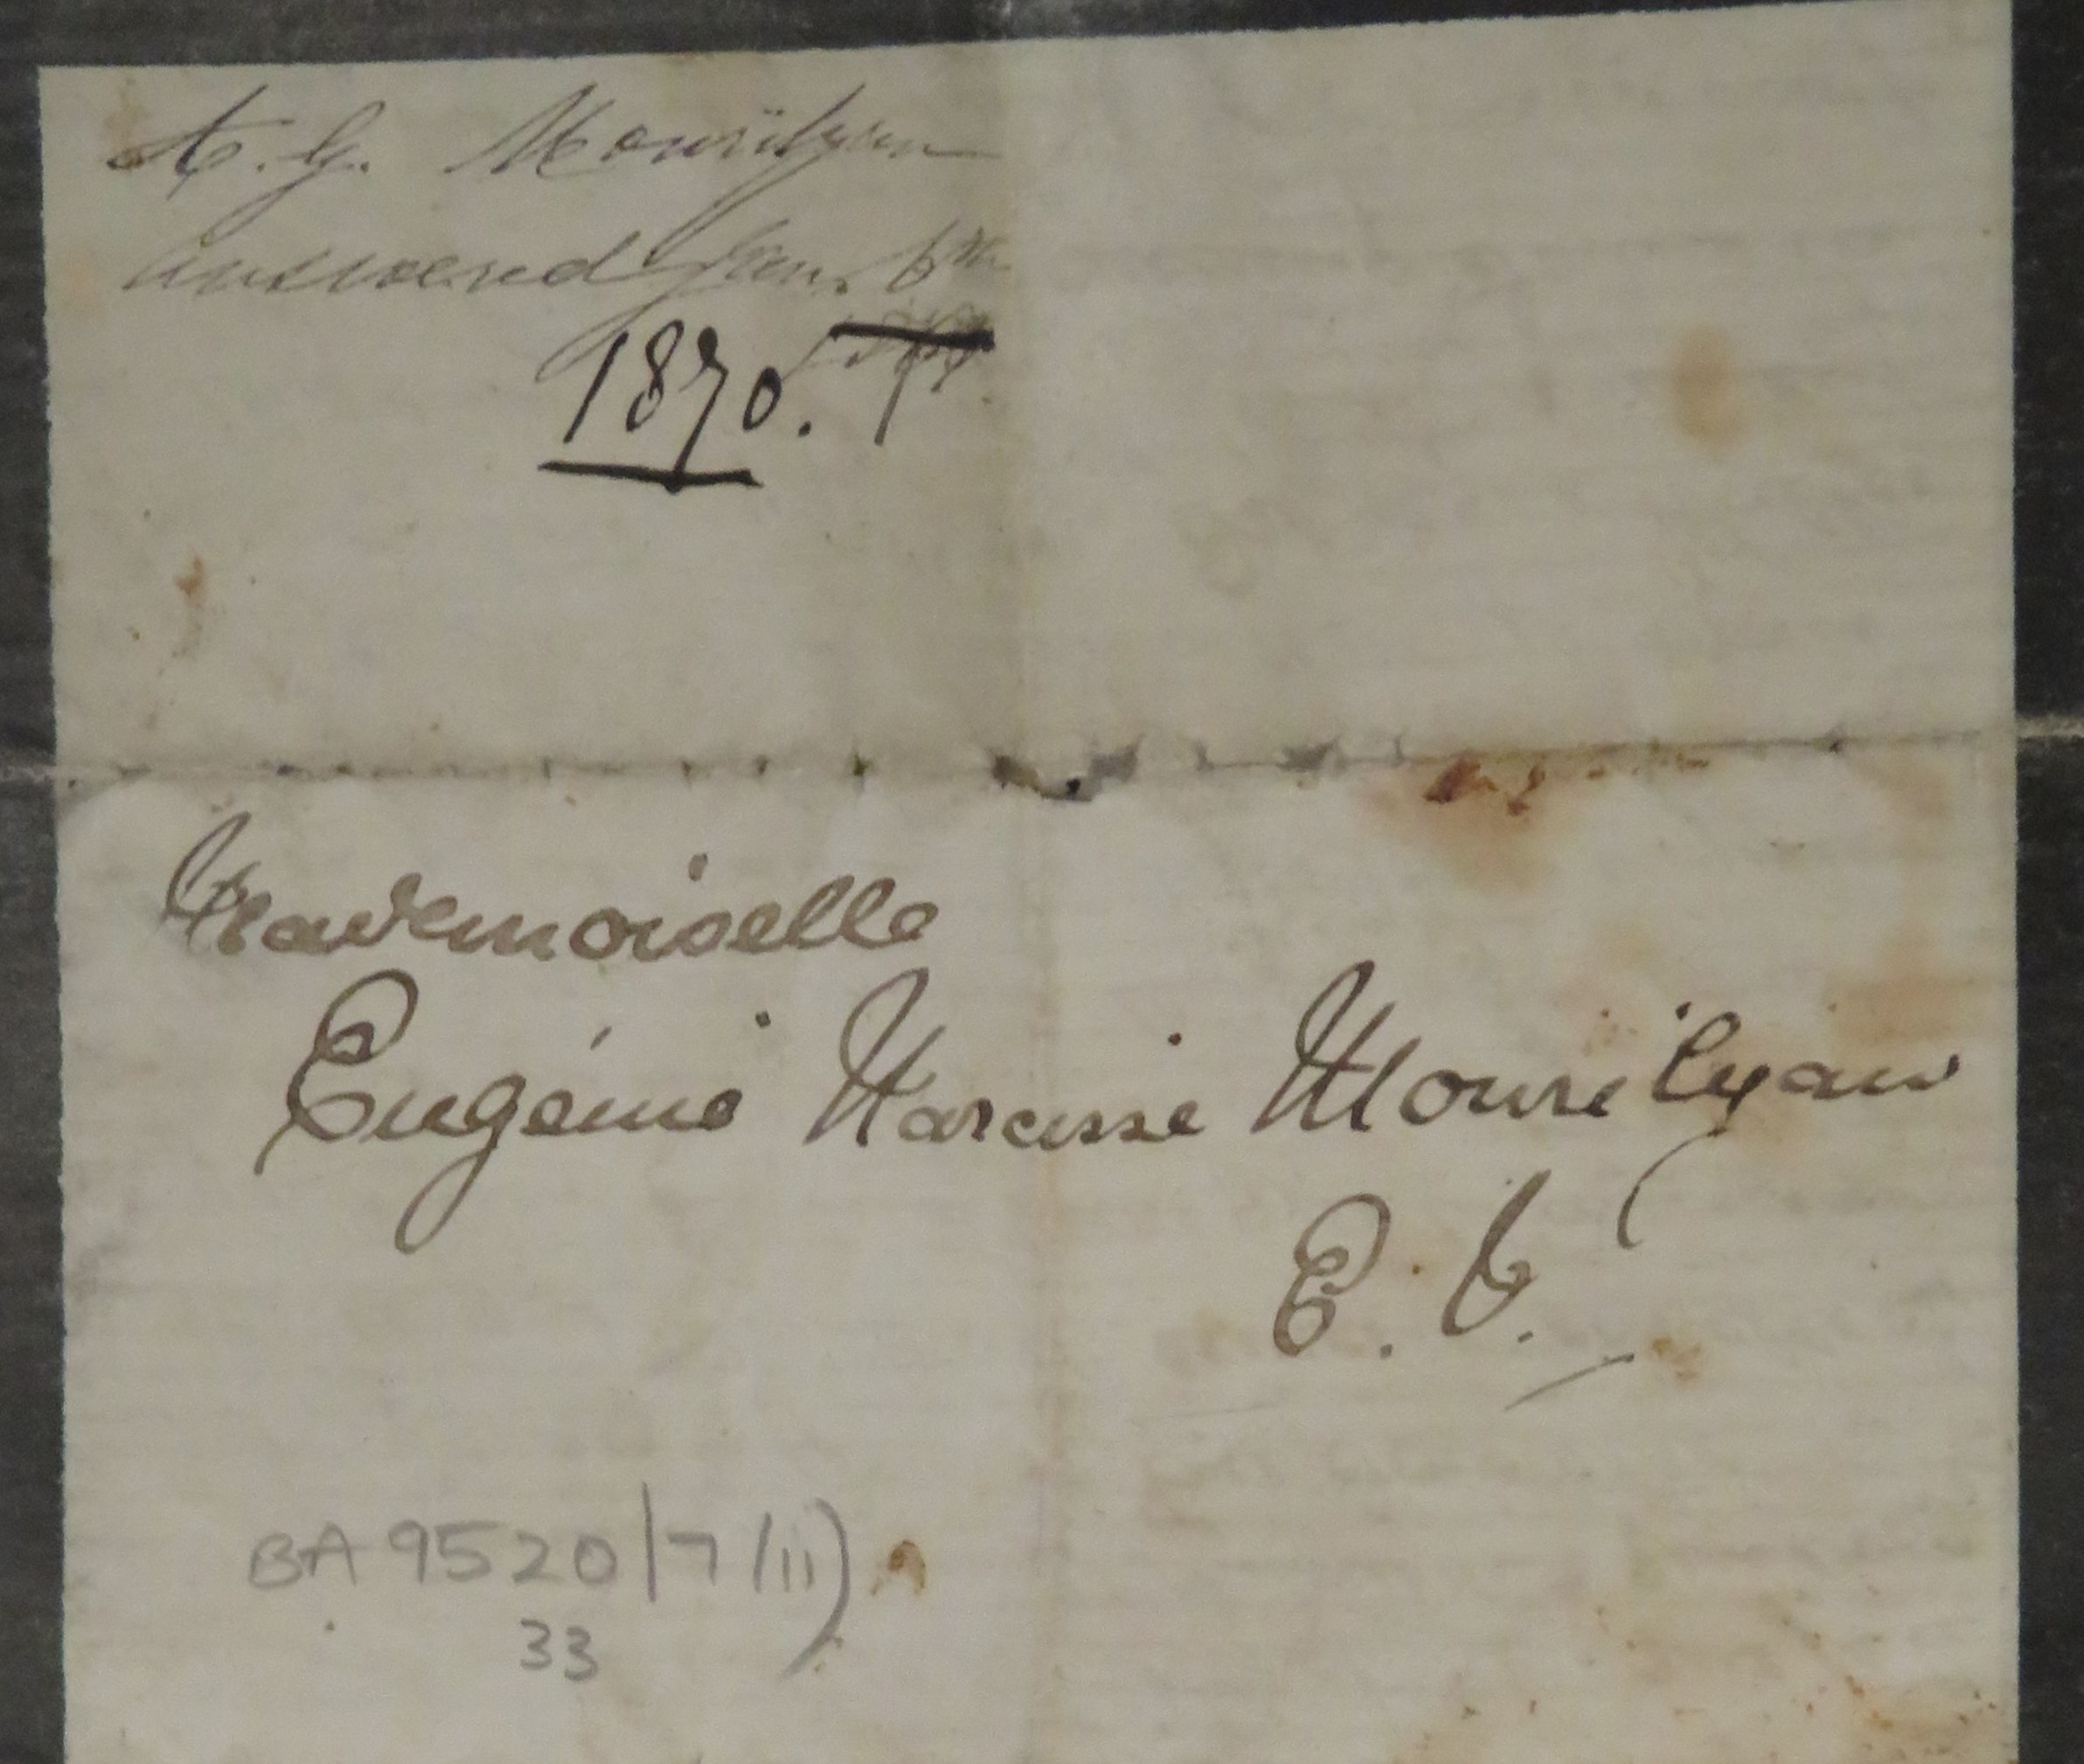 A. G. Mourilyan
answered Jan. 6th
1870.
Mademoiselle
Eugénie Narcisse Mourilyan
E. V.
BA 9520/7/11)
33